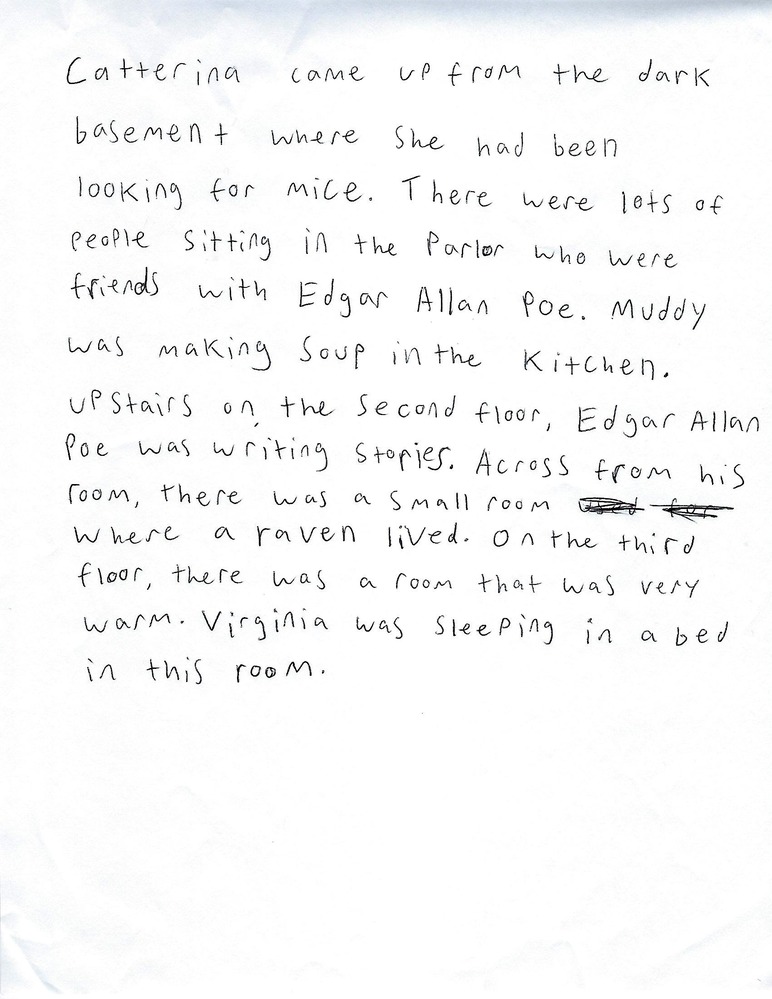 Catterina came up from the dark
basement where she had been
looking for mice. There were lots of
people sitting in the Parlor who were
friends with Edgar Allan Poe. Muddy
was making Soup in the Kitchen.
upstairs on the second floor, Edgar Allan
Poe was writing stories. Across from his
room, there was a small room
where a raven lived. On the third
floor, there was a room that was very
warm. Virginia was sleeping in a bed
in this room.